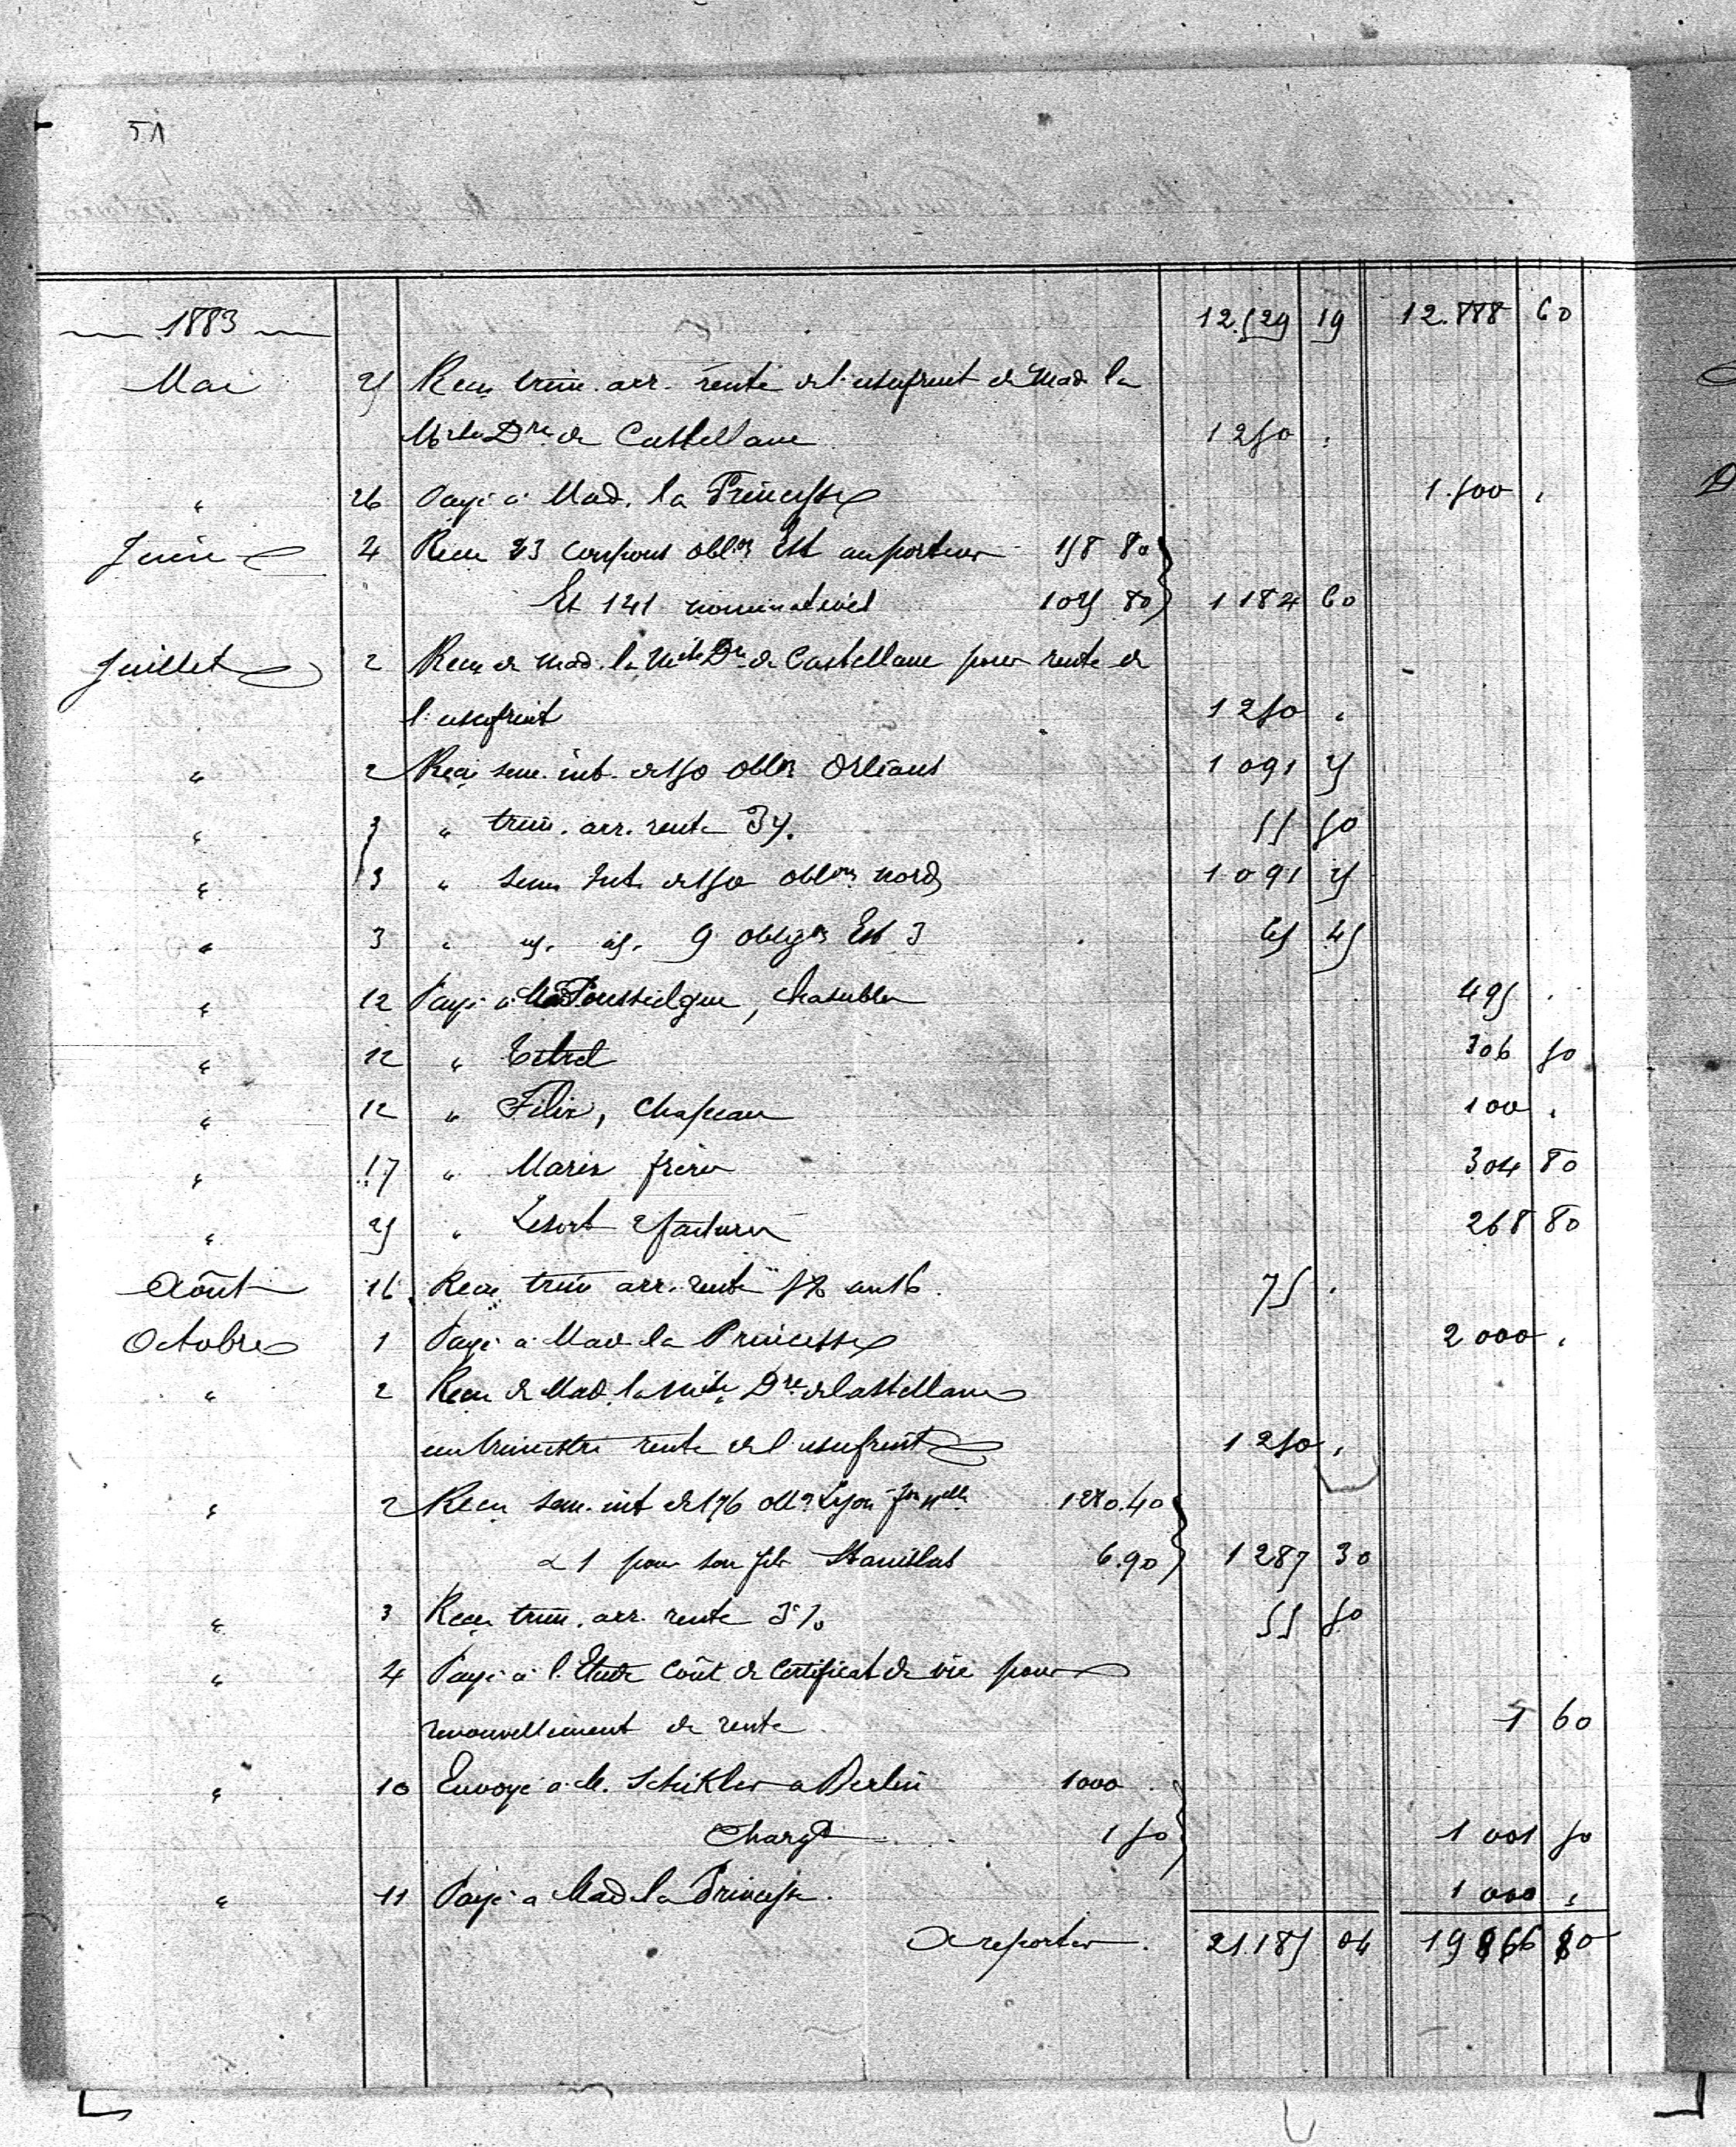 51
1883 12.529 19 12.888 60
Mai 25 Reçu trim. arr. rente de l'usufruit de Mad. la
Mise Dre de Castellane 1250 "
" 26 Payé à Mad. la Princesse 1.500 "
Juin 4 Reçu 23 coupons oblons Est au porteur 158 80
Et 141 nominatives 1025 80 1184 60
Juillet 2 Reçu de Mad. la Mise Dre de Castellane pour rente de
l'usufruit 1250 "
" 2 Reçu sem. int. de 150 oblons Orléans 1091 25
" 3 " trim. arr. rente 3%. 55 50
" 3 " sem. Int. de 150 oblons nord 1091 25
" 3 " " " 9 obligons Est 3 65 45
" 12 Payé à Poussielgue, chasubles 495 "
" 12 " Tétrel 306 50
" 12 " Félix, chapeau 100 "
" 17 " Marix frères 304 80
" 25 " Lesort 2 factures 268 80
Août 16 Reçu trim arr. rente 5% 75 "
Octobre 1 Payé à Mad. la Princesse 2000 "
" 2 Reçu de Mad. la Mise Dre de Castellane
un trimestre rente de l'usufruit 1250 "
" 2 Reçu sem. int de 176 obons Lyon fon nelle 1280.40
& 1 pour son fils Stanislas 6.90 1287 30
" 3 Reçu trim. arr. rente 3% 55 50
" 4 Payé à l'Etude coût de Certificat de vie pour
renouvellement de rente 1 60
" 10 Envoyé à M. Schikler à Berlin 1000 "
Chargt 1 50 1001 50
" 11 Payé à Mad. la Princesse. 1000 "
A reporter. 21.185 04 19866 80